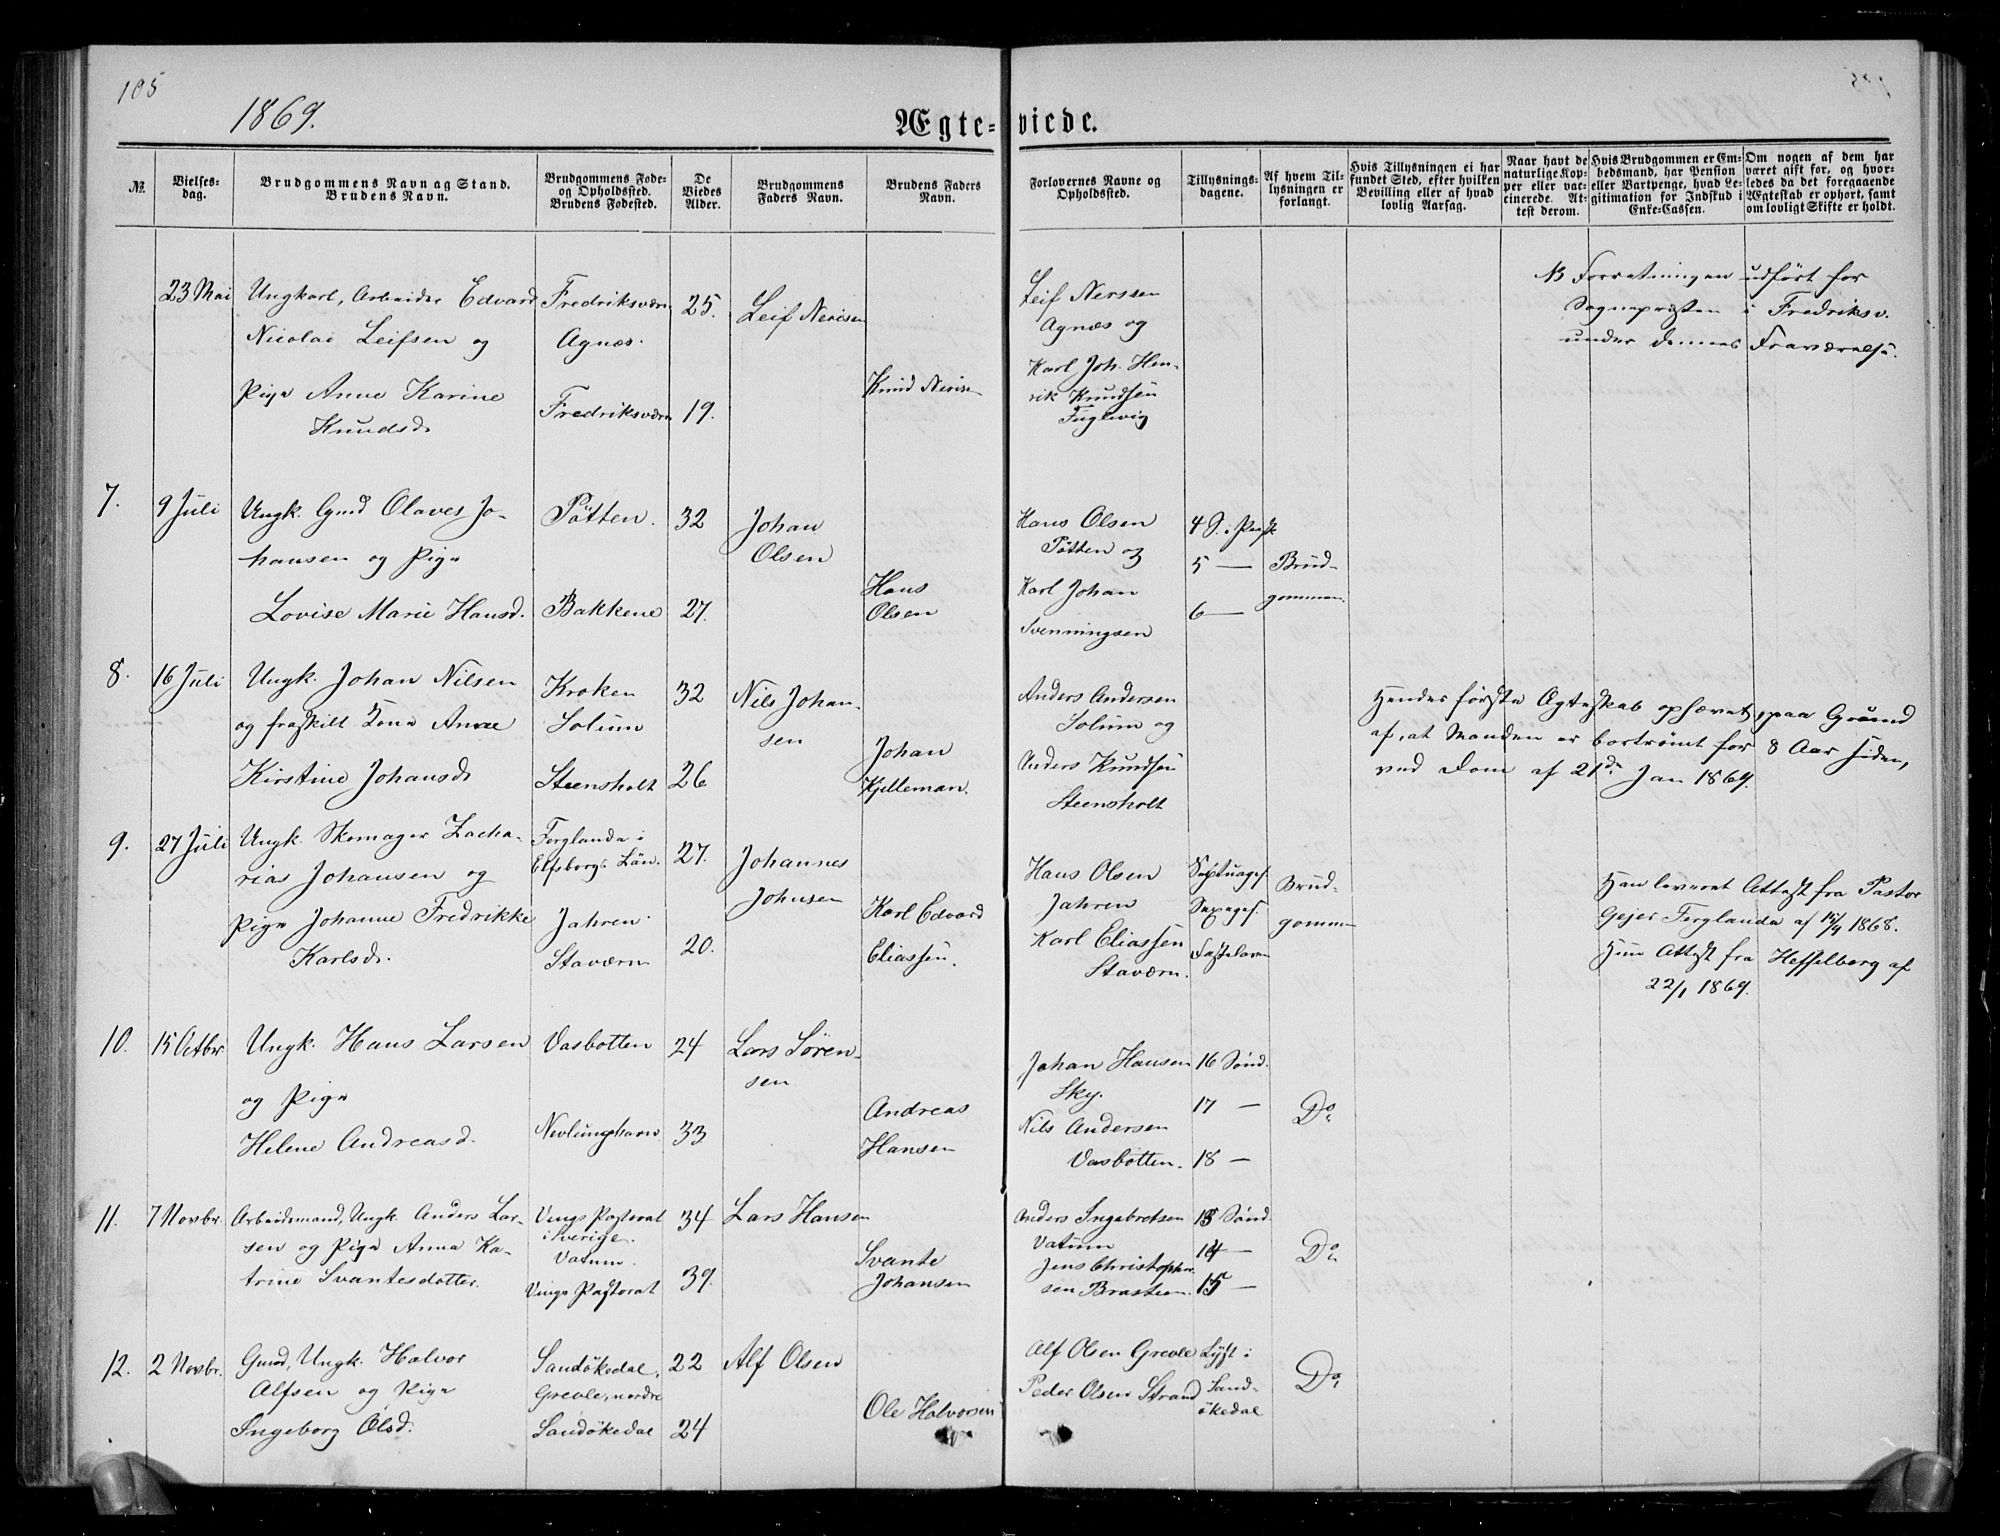 105
1869.
Ægte-viede.
№.
Vielses-
dag.
Brudgommens Navn og Stand.
Brudens Navn.
Brudgommens Føde-
og Opholdssted.
Brudens Fødested.
De
Viedes
Alder.
Brudgommens
Faders Navn.
Brudens Faders
Navn.
Forlovernes Navne og
Opholdssted.
Tillysnings-
dagene.
Af hvem Til-
lysningen er
forlangt.
Hvis Tillysningen ei har
fundet Sted, efter hvilken
Bevilling eller af hvad
lovlig Aarsag.
Naar havt de
naturlige Kop-
per eller vac-
cinerede. At-
test derom.
Hvis Brudgommen er Em-
bedsmand, har Pension
eller Vartpenge, hvad Le-
gitimation for Indskud i
Enke-Cassen.
Om nogen af dem har
været gift før, og hvor-
ledes da det foregaaende
Ægtestab er ophørt, samt
om lovligt Skifte er holdt.
23 Mai
Ungkarl, Arbeider Edvard
Nicolai Leifsen og
Pige Anne Karine
Knudsd.
Fredriksværn
Agnæs.
Fredriksværn
25.
19.
Leif Nerisen
Knud Nerisen
Leif Nerssen
Agnæs og
Karl Joh. Hen-
rik Knudsen
Fuglevig
NB Forretningen udført for
Sognepræsten i Fredriksv.
under dennes Fraværelse.
7.
9 Juli
Ungk. Gmd Olaves Jo-
hansen og Pige
Lovise Marie Hansd.
Pøtten.
Bakkene
32
27.
Johan
Olsen
Hans
Olsen
Hans Olsen
Pøtten og
Karl Johan
Svenningsen
4 S. i Paask
5 —
6 —
Brud-
gommen
8.
16 Juli
Ungk. Johan Nilsen
og fraskilt Kone Anne
Kirstine Johansd.
Kroken
Solum
Steensholt
32
26
Nils Johan-
sen
Johan
Kjelleman.
Anders Andersen
Solum og
Anders Knudsen
Steensholt
Hendes første Ægteskab ophævet, paa Grund
af, at Manden er bortrømt for 8 Aar siden,
ved Dom af 21de Jan 1869.
9.
27 Juli
Ungk. Skomager Zacha-
rias Johansen og
Pige Johanne Fredrikke
Karlsd.
Ferglanda i
Elfsborgs Län.
Jahren.
Staværn
27.
20.
Johannes
Johnsen
Karl Edvard
Eliassen.
Hans Olsen
Jahren
Karl Eliassen
Staværn.
Septuages.
Sexages.
Fastelaven
Brud-
gommen
Han leveret Attest fra Pastor
Gejer Ferglanda af 15/4 1868.
Hun Attest fra Hesselberg af
22/1 1869.
10.
15 Octbr.
Ungk. Hans Larsen
og Pige
Helene Andreasd.
Vasbotten
Nevlunghavn
24
33
Lars Søren-
sen
Andreas
Hansen
Johan Hansen
Sky.
Nils Andersen
Vasbotten.
16 Sønd.
17 —
18 —
Do
11.
7 Novbr.
Arbeidsmand, Ungk. Anders Lar-
sen og Pige Anna Ka-
trine Svantesdotter.
Vings Pastorat
i Sverige.
Vatum.
Vings Pastorat
34
39.
Lars Hansen
Svante
Johansen
Anders Ingebretsen
Vatum
Jens Christopher-
sen Brasteen.
13 Sønd.
14 —
15 —
Do
12.
2 Novbr.
Gmd, Ungk. Halvor
Alfsen og Pige
Ingeborg Olsd.
Sandøkedal,
Grevle, nordre
Sandøkedal
22
24
Alf Olsen
Ole Halvorsen
Alf Olsen Grevle
Peder Olsen Strand
Lyst i
Sand-
økedal
Do